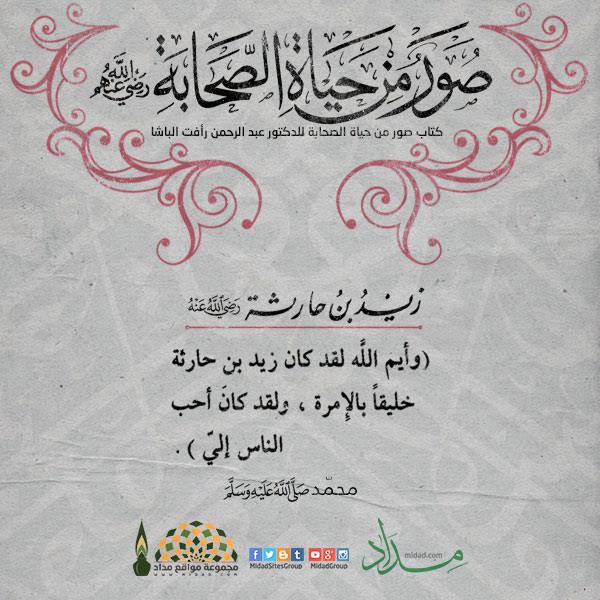 صور من حياة الصحابة رضي الله عنهم
كتاب صور من حياة الصحابة للدكتور عبد الرحمن رأفت الباشا
زيد بن حارثة رَضِيَ اللَّهُ عَنْهُ
(وأيم اللَّه لقد كان زيد بن حارثة
خليقاً بالإِمرة ، ولقد كانَ أحب
الناس إليّ ) .
محمّد صَلَّى اللَّهُ عَلَيْهِ وَسَلَّمَ
مجموعة مواقع مداد
WWW.MIDAD.COM
MidadSitesGroup
MidadGroup
midad.com
مداد